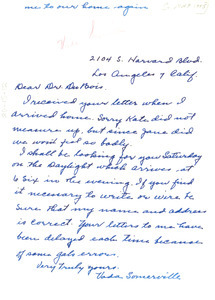 me to our home again
2104 S. Harvard Blvd.
Los Angeles 7 Calif.
Dear Dr. Du Bois.
I received your letter when I
arrived home. Sorry Kate did not
measure up, but since Jane did
we wont feel so badly.
I shall be looking for you Saturday
on the Daylight which arrives at
6 Six in the evening. If you find
it necessary to write or wire be
sure that my name and address
is correct. Your letters to me have
been delayed each time because
of some gals errors.
Very truly yours,
Vada Somerville